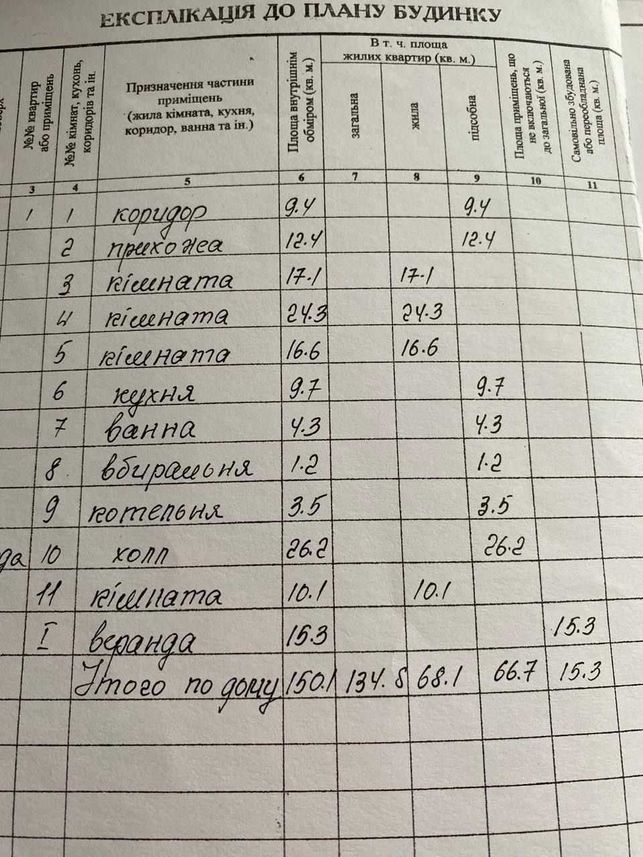 ЕКСПЛІКАЦІЯ ДО ПЛАНУ БУДИНКУ
№№ квартир або приміщень
№№ кімнат, кухонь, коридорів та ін.
Призначення частини
приміщень
(жила кімната, кухня,
коридор, ванна та ін.)
Площа внутрішнім обміром (кв. м.)
В т. ч. площа
жилих квартир (кв. м.)
загальна
жила
підсобна
Площа приміщень, що не включаються до загальної (кв. м.)
Самовільно збудована або переобладнана площа (кв. м.)
3 4 5 6 7 8 9 10 11
1 1 коридор 9.4 9.4
2 прихожа 12.4 12.4
3 кімната 17.1 17.1
4 кімната 24.3 24.3
5 кімната 16.6 16.6
6 кухня 9.7 9.7
7 ванна 4.3 4.3
8 вбиральня 1.2 1.2
9 котельня 3.5 3.5
10 холл 26.2 26.2
11 кімната 10.1 10.1
I веранда 15.3 15.3
Итого по дому 150.1 134.8 68.1 66.7 15.3